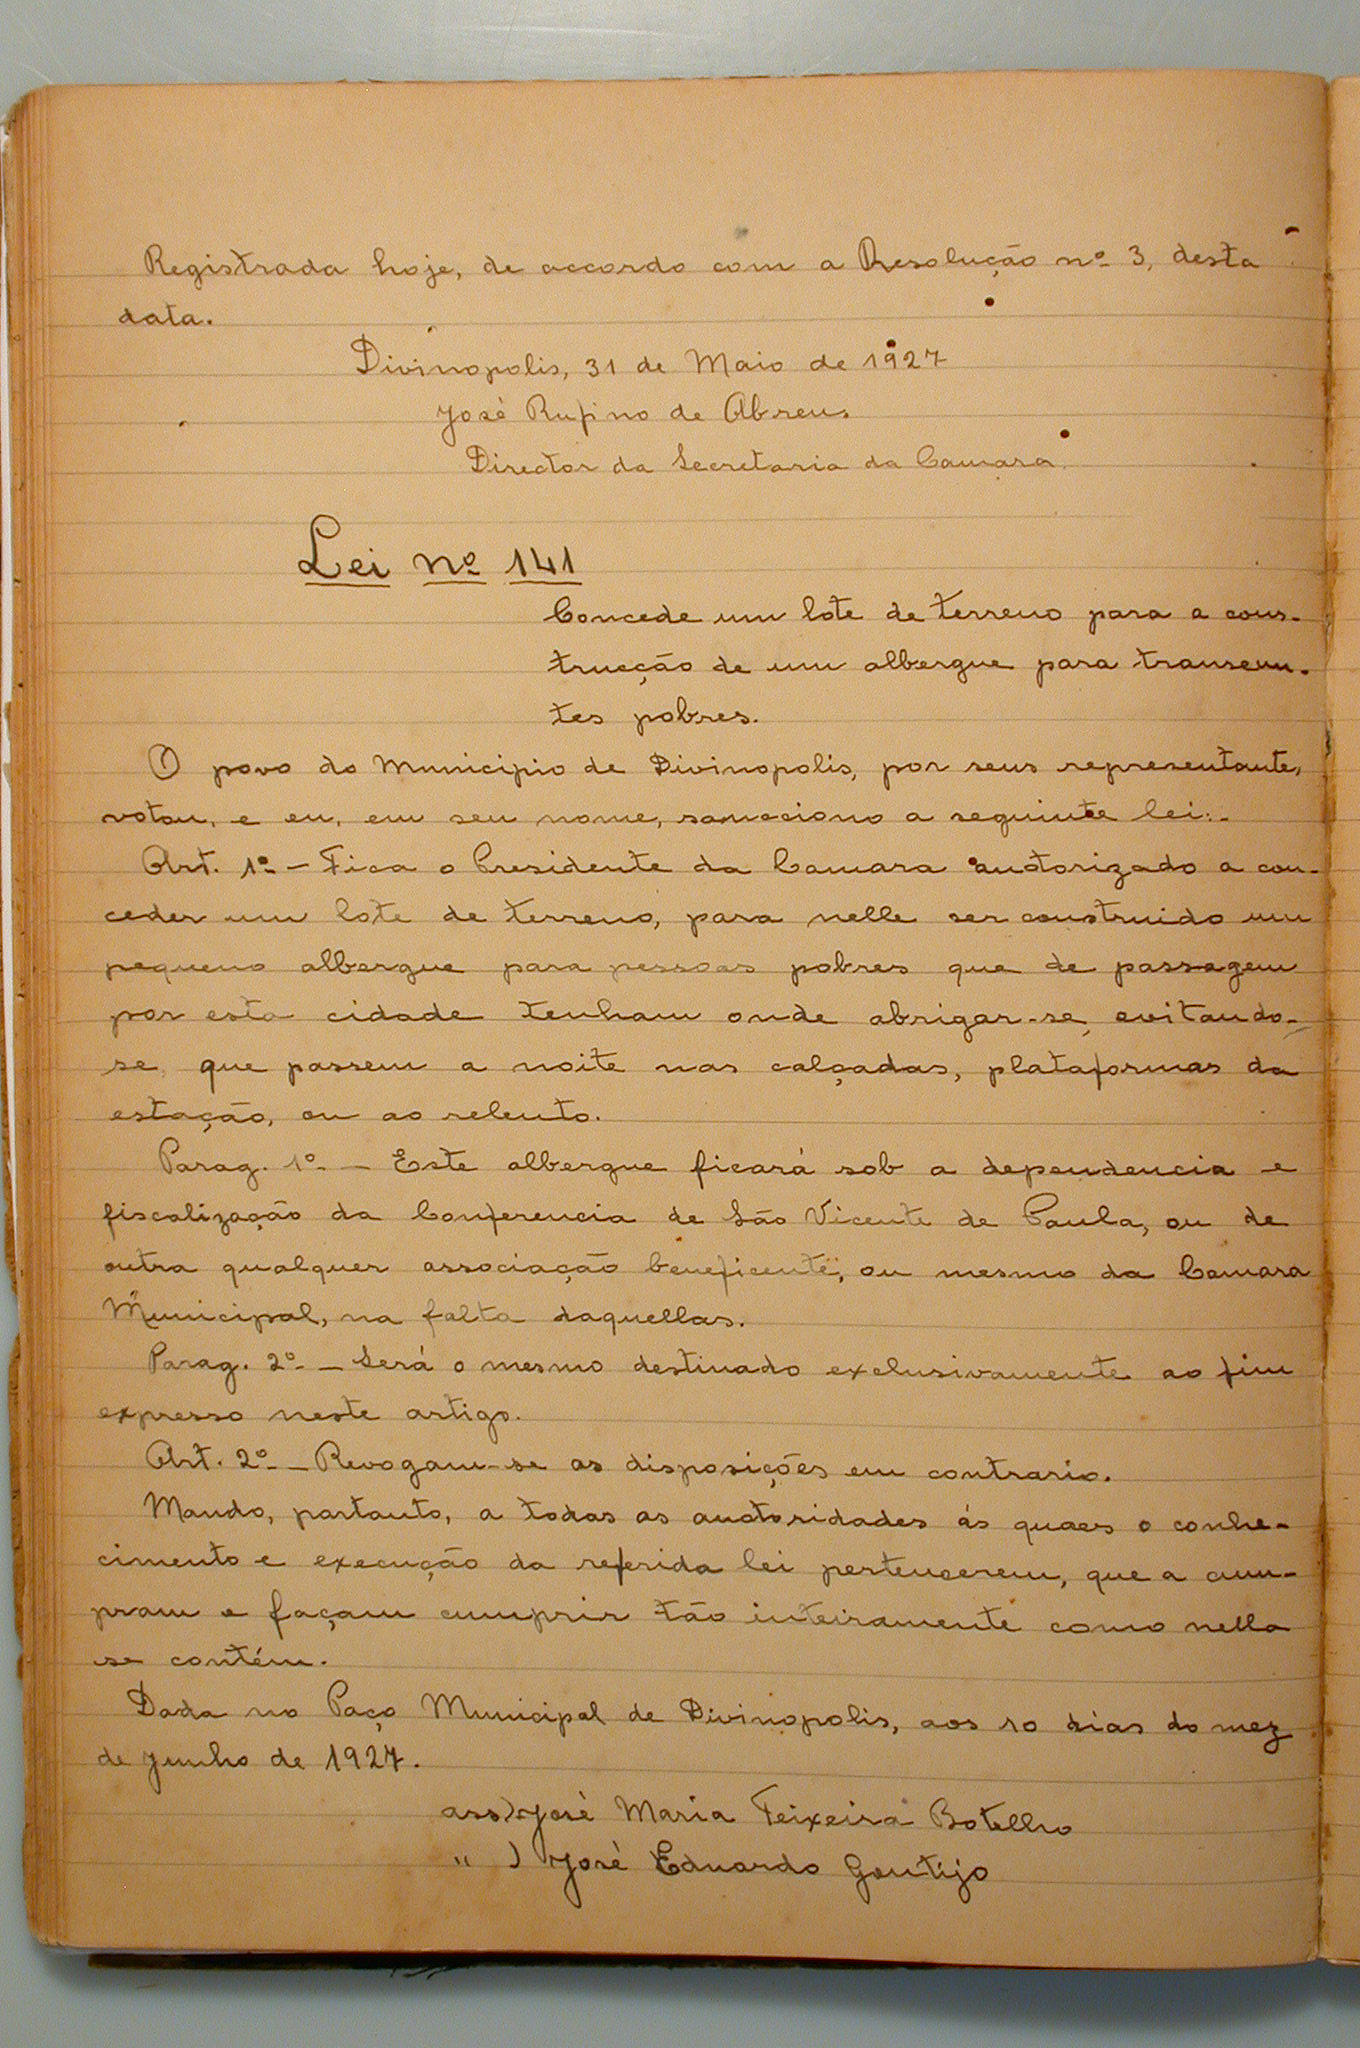 Registrada hoje, de accordo com a Resolução nº 3, desta
data.
Divinopolis, 31 de Maio de 1927
José Rufino de Abreu.
Director da Secretaria da Camara.
Lei nº 141
Concede um lote de terreno para a cons-
trucção de um albergue para transeun-
tes pobres.
O povo do Municipio de Divinopolis, por seus representante,
votou, e eu, em seu nome, sancciono a seguinte lei:-
Art. 1º - Fica o Presidente da Camara auctorizado a con-
ceder um lote de terreno, para nelle ser construido um
pequeno albergue para pessoas pobres que de passagem
por esta cidade tenham onde abrigar-se, evitando-
se, que passem a noite nas calçadas, plataformas da
estação, ou ao relento.
Parag. 1º - Este albergue ficará sob a dependencia e
fiscalização da Conferencia de São Vicente de Paula, ou de
outra qualquer associação beneficente, ou mesmo da Camara
Municipal, na falta daquellas.
Parag. 2º - Será o mesmo destinado exclusivamente ao fim
expresso neste artigo.
Art. 2º - Revogam-se as disposições em contrario.
Mando, portanto, a todas as auctoridades ás quaes o conhe-
cimento e execução da referida lei pertencerem, que a cum-
pram e façam cumprir tão inteiramente como nella
se contém.
Dada no Paço Municipal de Divinopolis, aos 10 dias do mez
de Junho de 1927.
ass) José Maria Teixeira Botelho
" ) José Eduardo Gontijo